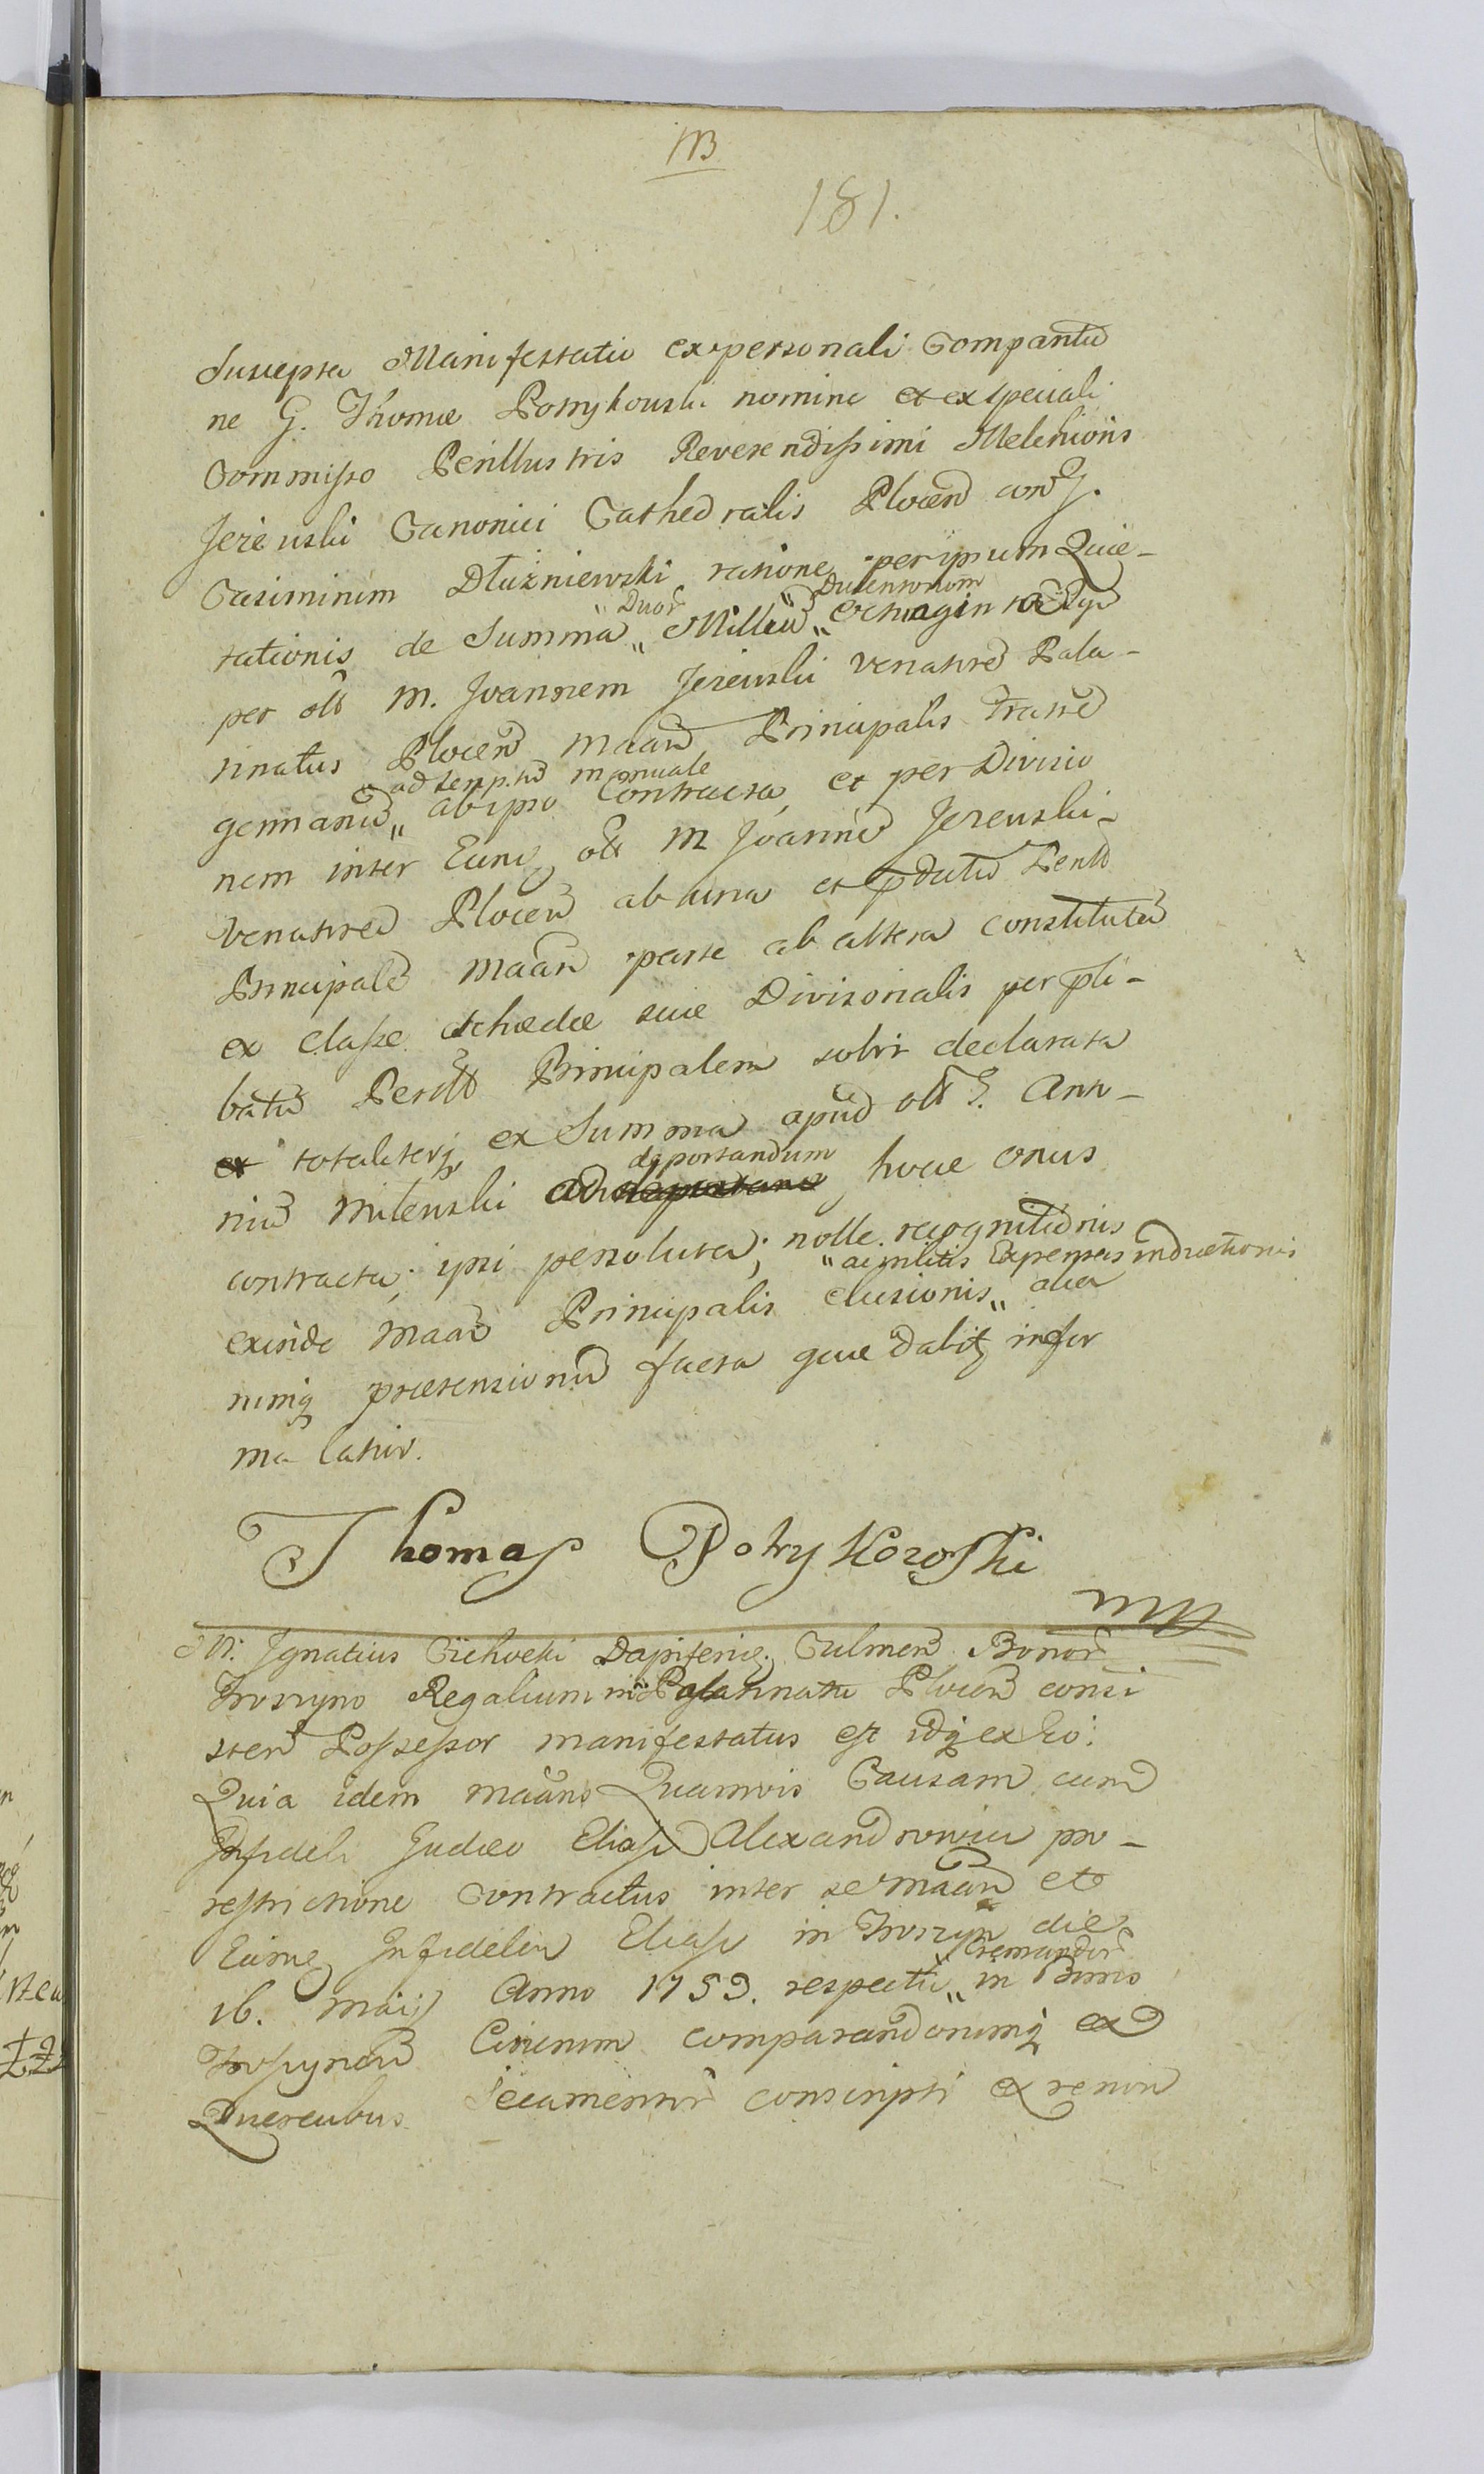 M
181.
Suscepta Manifestatio ex personali Compantio
ne G. Thomæ Potrykouski nomine et ex speciali
Commisso Perillustris Reverendissimi Melchioris
Jeżeuski Canonici Cathedralis Plocen con G.
Casimirum Dłużniewski ratione per ipsum Quie-
tationis de Summa „Duor Milleu „Ducentorum Octuaginta
per olt M. Joannem Jeżeuski Venatore Pala-
tinatus Plocen Maan Principalis Fratre
germanu „ad tempus manuale ab ipso Contracta, et per Divisio
nem inter Eunq olt M Joanne Jezeuski-
Venatore Plocen ab una et pdictu Perill
Principale Maan parte ab altera constitutu
ex classe Schedæ suæ Divisorialis per pli-
batu Perill Principalem sobir declarata
et totaliterq ex Summa apud olt G. Anto-
niu Mileuski ad deportandum hocce onus
contracta; ipsi persoluta; nolle recognitionis
exinde Maan Principalis elusionis „ac militis Expensas inductionis alia
rumq prætensionu facta quæ dabit in for
ma latior.
Thomas Potrykowski
mp
M. Ignatius Cichocki Dapiferiq Culmen Bonor
Troszyno Regalium in Palatinatu Plocen consi
sten Possessor manifestatus est idq ex Eo:
Quia idem Maans Quamvis Causam cum
Infideli Judæo Eliasz Alexandrowicz pro-
restrictione Contractus inter se Maan et
Eunq Infidelem Eliasz in Troszyn die
16. Maij Anno 1759. respectu „Cremandor in Bonis
Troszynen Cinerum comparandorumq ex
Quercubus Secamentor conscripti